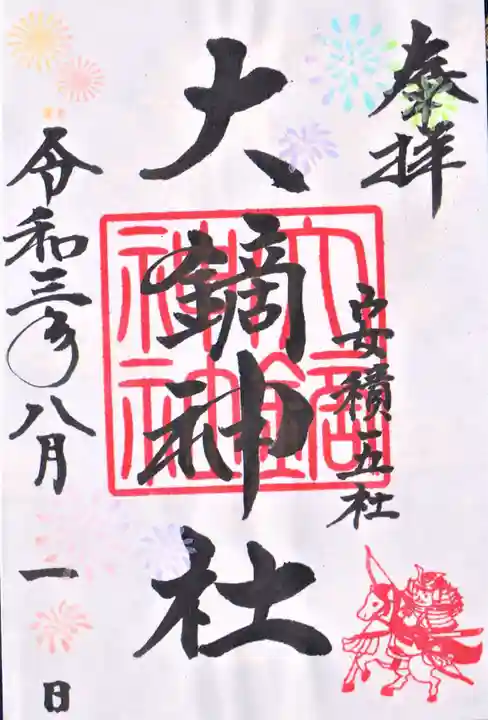 奉拝
安積三五社
大鏑神社
大鏑神社
令和三年八月一日